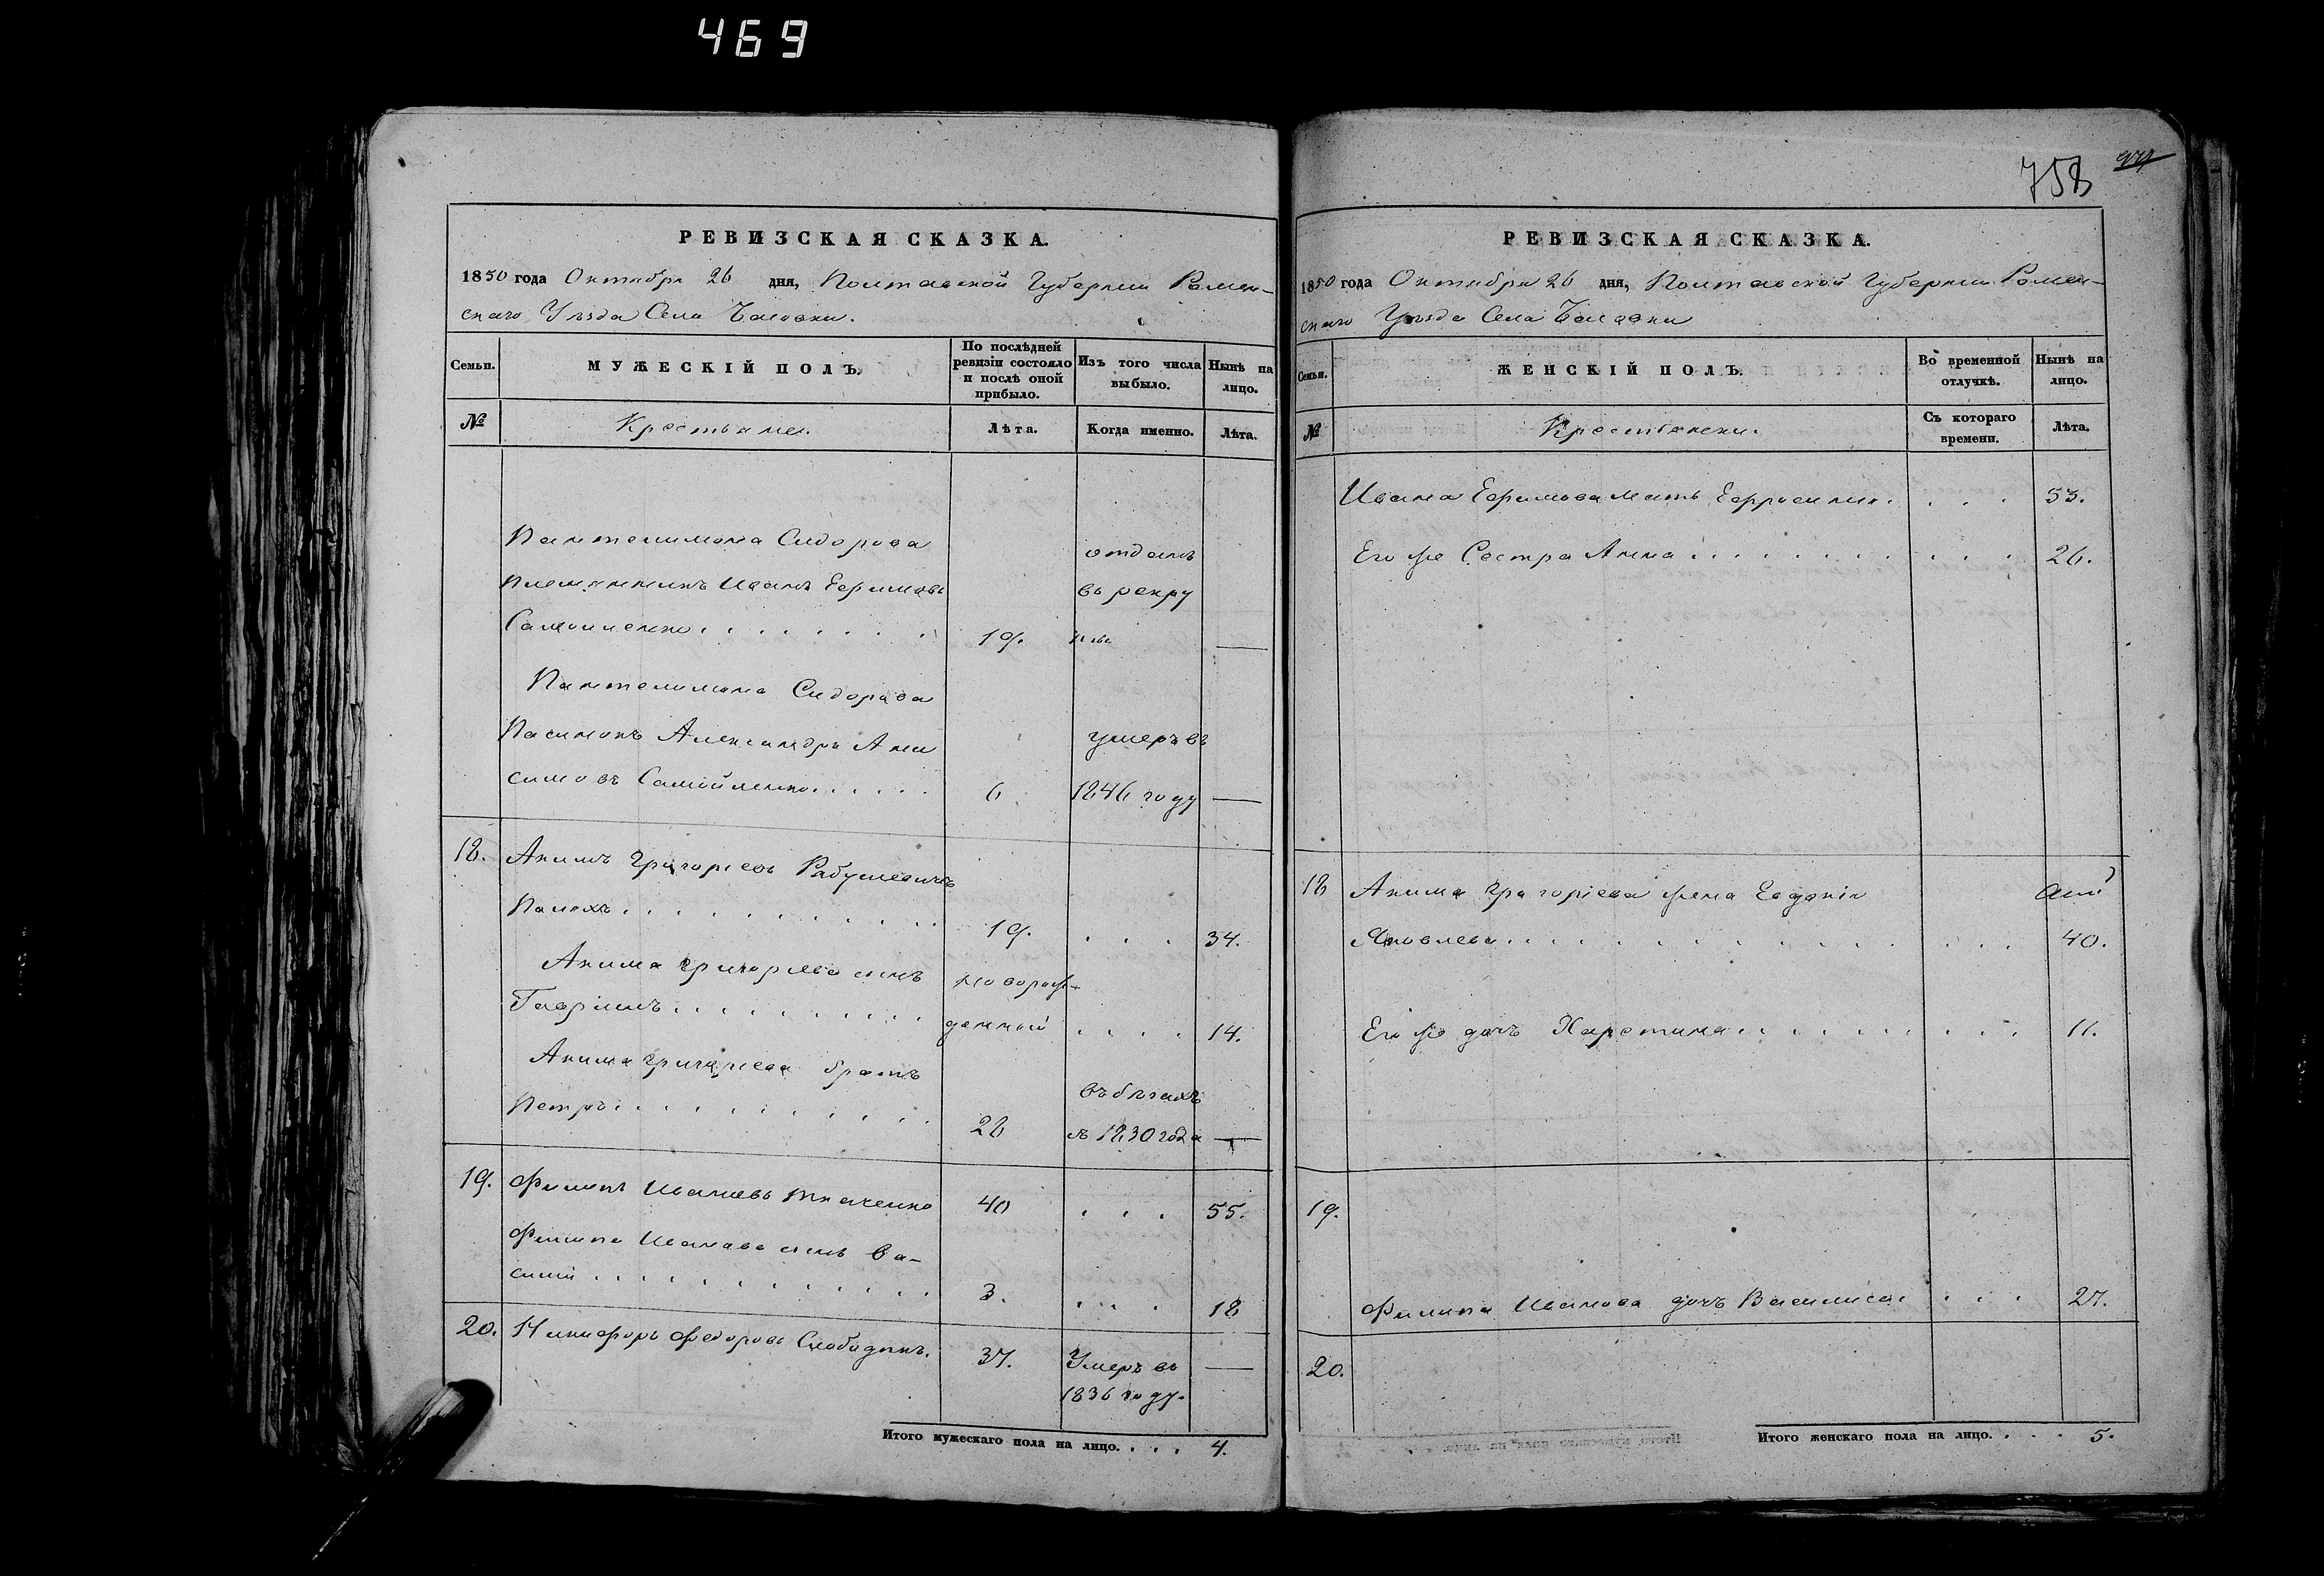 469
758
РЕВИЗСКАЯ СКАЗКА.
1850 года Октября 26 дня, Полтавской Губернии Ромен-
скаго Уѣзда Села Басовки.
Семьи.
МУЖЕСКІЙ ПОЛЪ.
По послѣдней ревизіи состояло и послѣ оной прибыло.
Изъ того числа выбыло.
Нынѣ на лицо.
№
Крестьяне.
Лѣта.
Когда именно.
Лѣта.
Пантелимона Сидорова
отданъ
племянникъ Иванъ Ефимовъ
въ рекру
Самойленко . . . . . . . . 19. ты —
Пантелимона Сидорова
Пасинокъ Александръ Ани
умеръ въ
симовъ Самойленко . . . . . 6. 1846 году —
18. Акимъ Григорьевъ
. . . . . . . . . . . 19. . . . 34.
Акима Григорьева сынъ новорож-
Гаврiилъ . . . . . . . . . . денный . . . . 14.
Акима Григорьева братъ
въ бѣгахъ
Петръ . . . . . . . . . . . 28 съ 1830 года —
19. Филипъ Ивановъ Ткаченко 40 . . . 55.
Филипа Иванова сынъ Ва-
силій . . . . . . . . . . . . 3. . . . 18
20. Никифоръ Федоровъ Слободянъ. 37. Умеръ въ —
1836 году.
Итого мужескаго пола на лицо. . . . 4.
РЕВИЗСКАЯ СКАЗКА.
1850 года Октября 26 дня, Полтавской Губернии Ромен-
скаго Уѣзда Села Басовки
Семьи.
ЖЕНСКІЙ ПОЛЪ.
Во временной отлучкѣ.
Нынѣ на лицо.
№
Крестьянки.
Съ котораго времени.
Лѣта.
Ивана Ефимова мать Ефросинія. . . . 53.
Его же Сестра Анна . . . . . . . . . . 26.
18 Акима Григорiева жена Евдокія
Яковлева . . . . . . . . . . . . . . 40.
Его же дочь Харетина . . . . . . . . . 11.
19.
Филипа Иванова дочь Василиса. . . . 27.
20.
Итого женскаго пола на лицо. . . . 5.